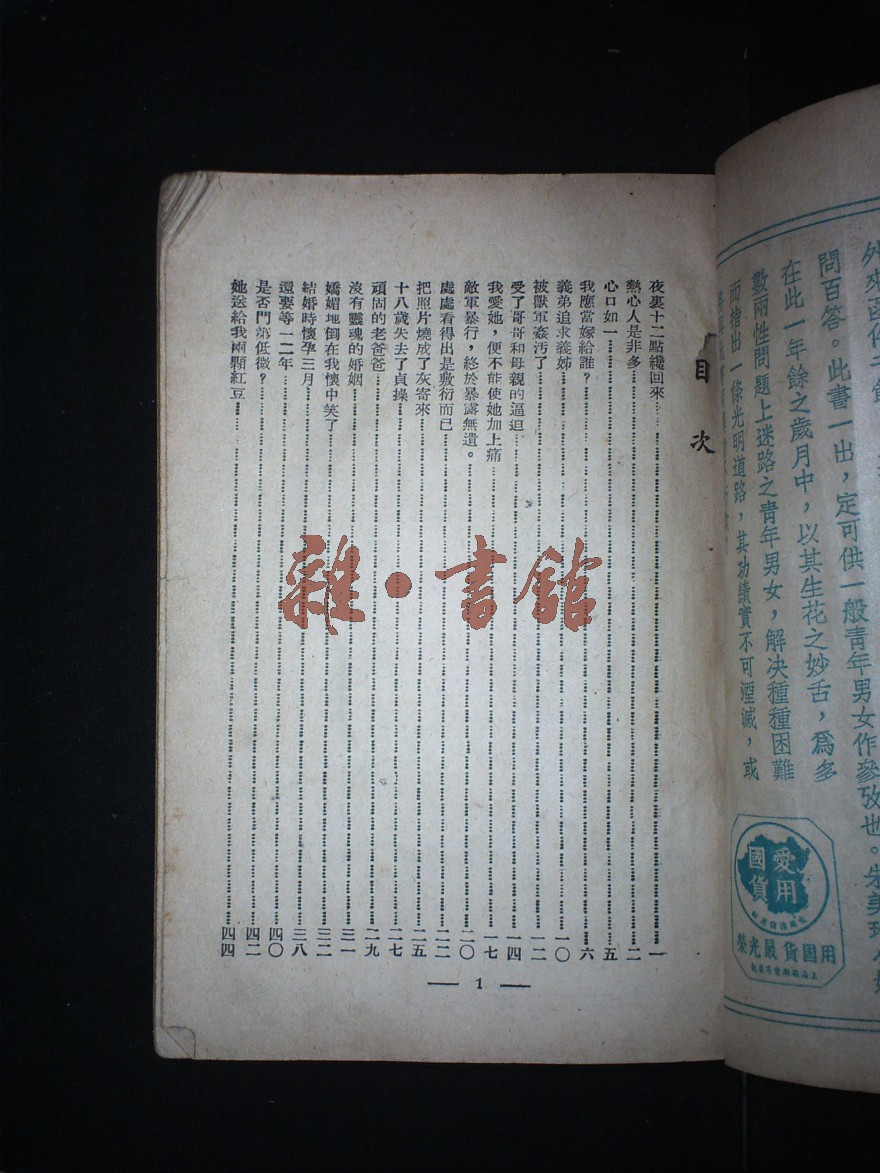 外來函件
問百答。此書一出，定可供一般青年男女作參攷也。朱美
在此一年餘之歲月中，以其生花之妙舌，爲多
數兩性問題上迷路之青年男女，解決種種困難
而指出一條光明道路，其功績實不可湮滅，或
愛用國貨
用國貨最光榮
目次
夜裏十二點纔回來……一
熱心人是非多……二
心口如一……五
我應當嫁給誰？……六
義弟追求義姊……一〇
被獸軍姦汚了……一二
受了哥哥和母親的逼迫……一四
我愛她，便不能使她加上痛……一七
敵軍暴行，終於暴露無遺。……二〇
處處看得出是敷衍而已……二二
把照片燒成了灰寄來……二五
十八歲失去了貞操……二七
頑固的老爸爸……二九
沒有靈魂的婚姻……三一
嬌媚地倒在我懷中笑了……三二
結婚時懷孕三月……三八
還要等一二年……四〇
是否門第低微？……四二
她送給我兩顆紅豆……四四
— 1 —
雜·書館